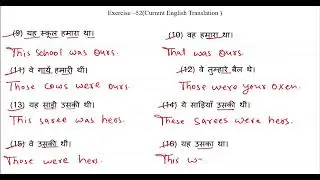 Exercise –52(Current English Translation )
(9) यह स्कूल हमारा था। (10) वह हमारा था।
This school was ours. That was ours.
(11) वे गायें हमारी थीं। (12) वे तुम्हारे बैल थे।
Those cows were ours. Those were your oxen.
(13) यह साड़ी उसकी थी। (14) ये साड़ियाँ उसकी थीं।
This saree was hers. These sarees were hers.
(15) वे उसकी थीं। (16) यह उसका था।
Those were hers. This w